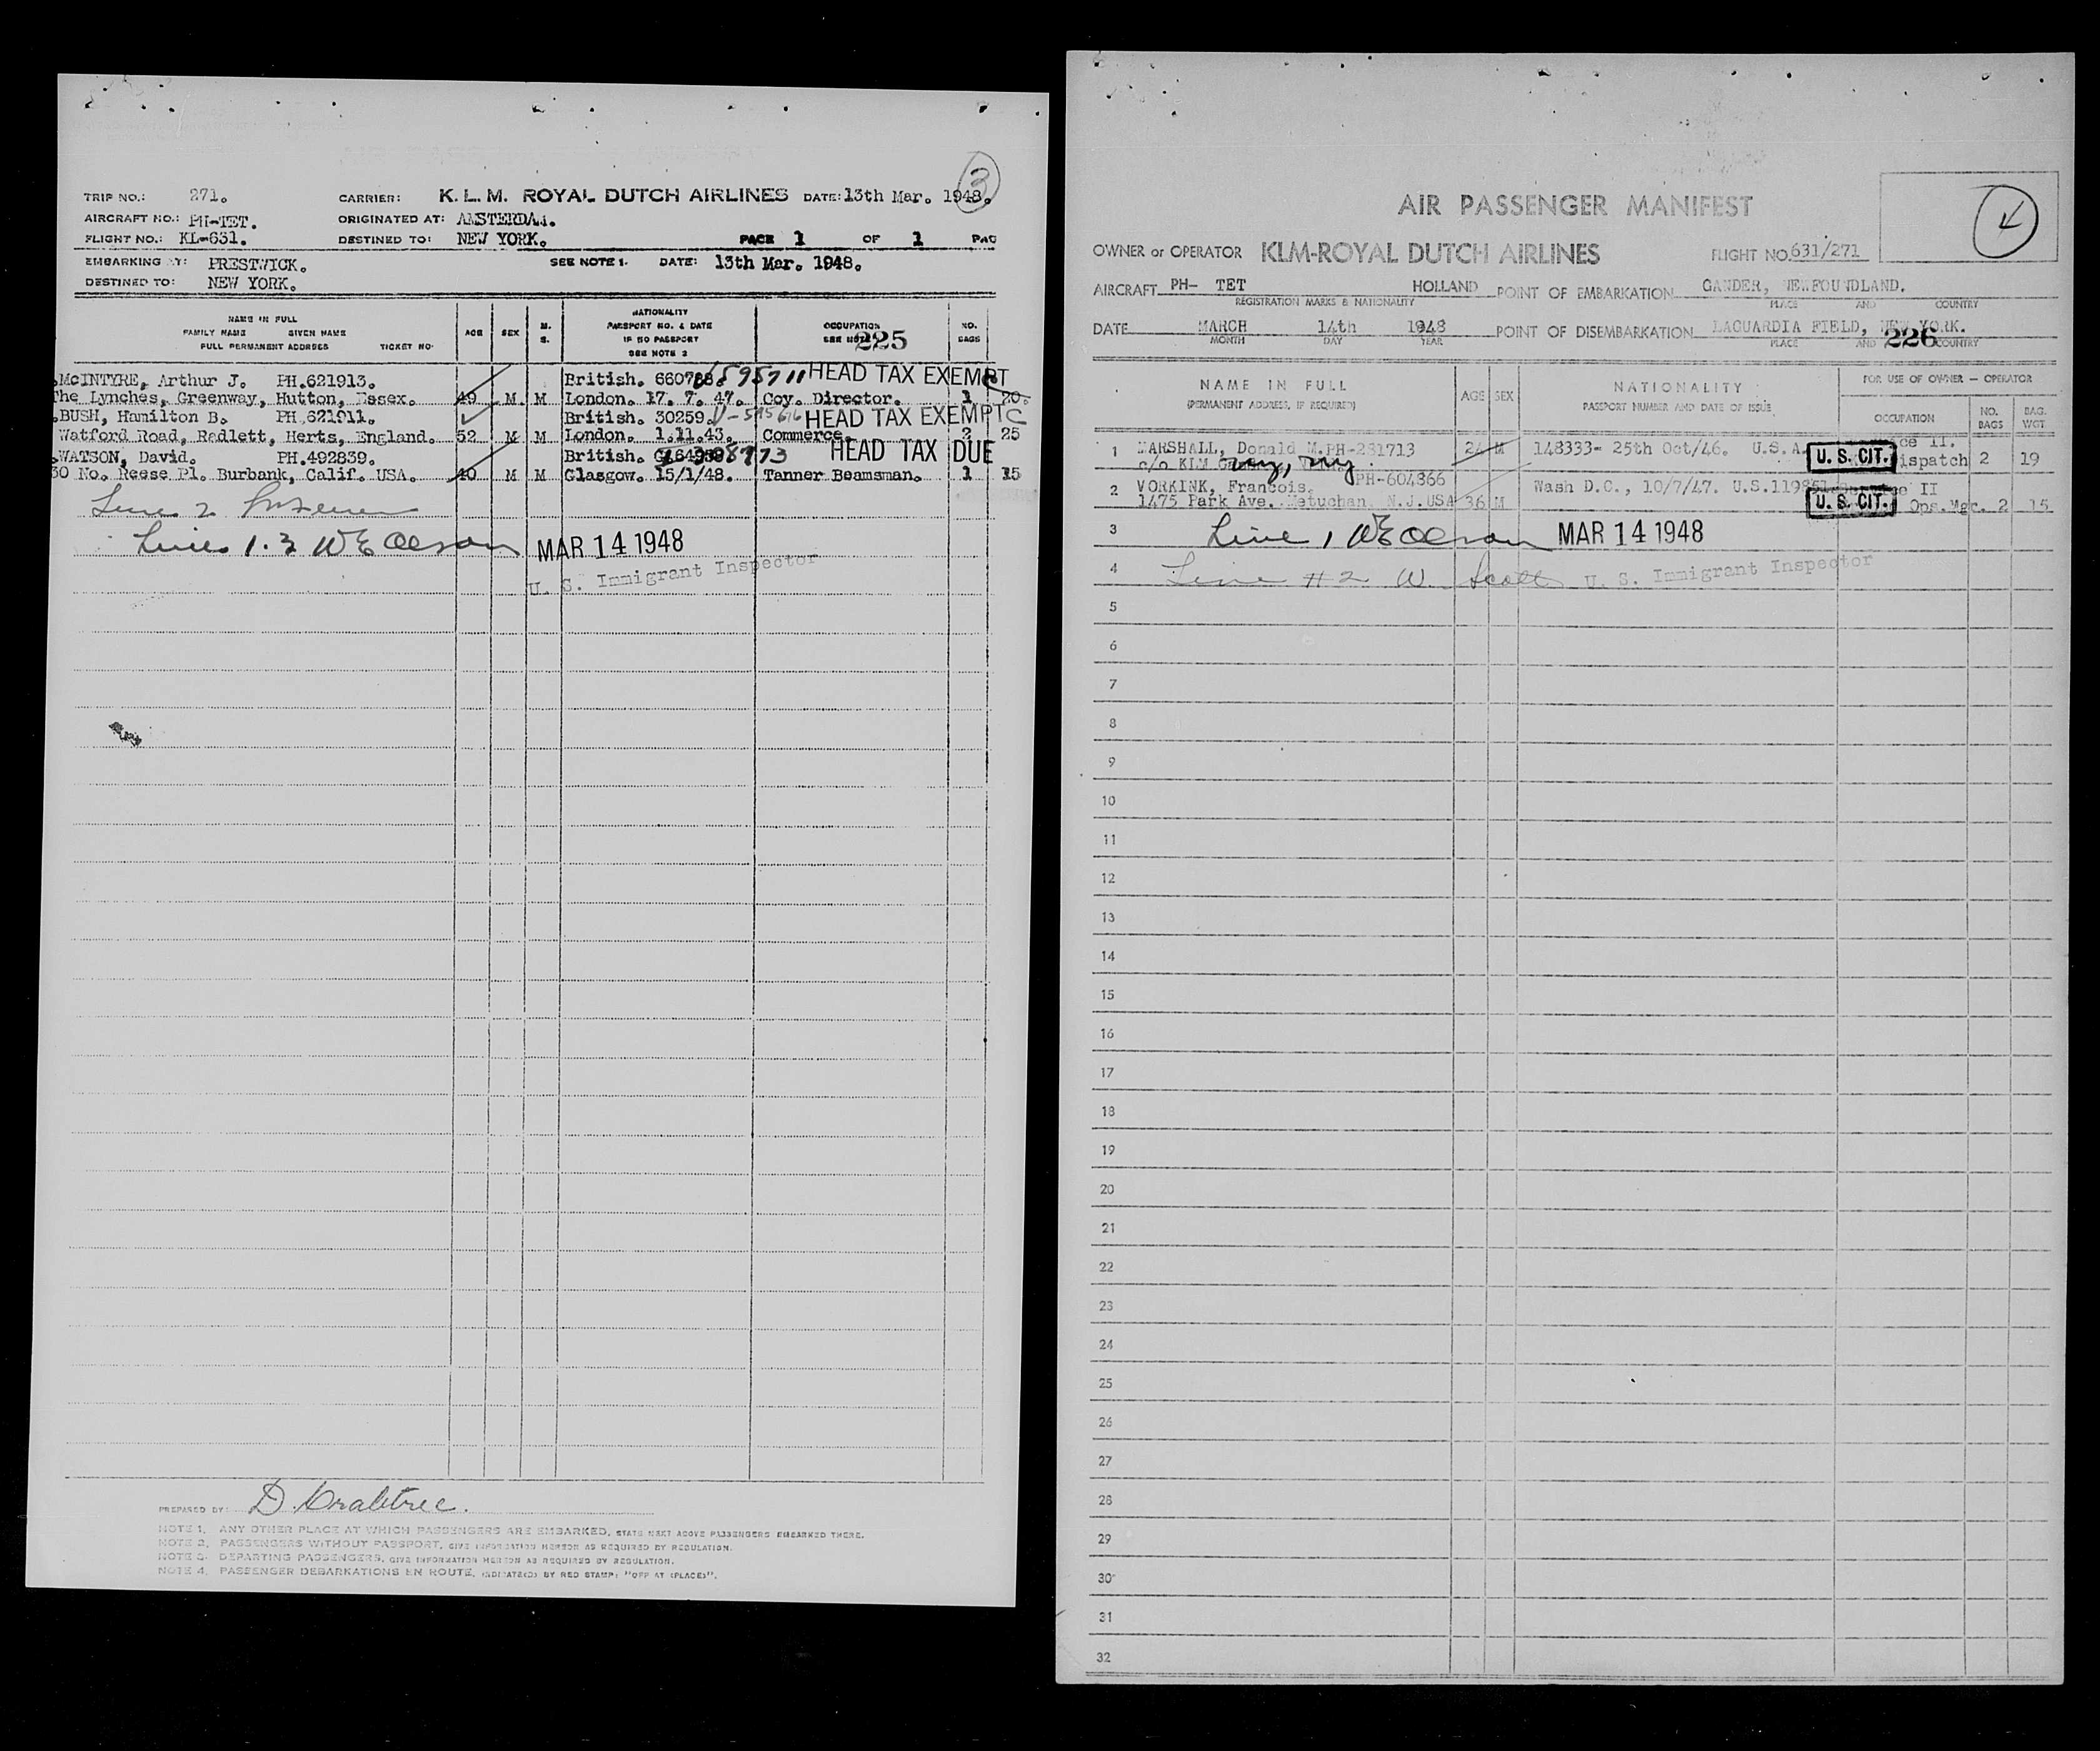 3
TRIP NO.: 271. CARRIER: K. L. M. ROYAL DUTCH AIRLINES DATE: 13th Mar. 1948.
AIRCRAFT NO.: PH-TET. ORIGINATED AT: AMSTERDAM.
FLIGHT NO.: KL-631. DESTINED TO: NEW YORK. PAGE 1 OF 1 PAG
EMBARKING AT: PRESTWICK. SEE NOTE 1. DATE: 13th Mar. 1948.
DESTINED TO: NEW YORK.
NAME IN FULL
FAMILY NAME GIVEN NAME
FULL PERMANENT ADDRESS TICKET NO.
AGE SEX M. S.
NATIONALITY
PASSPORT NO. & DATE
IF NO PASSPORT
SEE NOTE 2
OCCUPATION
SEE NOTE
225
NO. BAGS
McINTYRE, Arthur J. PH.621913. British. 660788. V595711 HEAD TAX EXEMPT
The Lynches, Greenway, Hutton, Essex. 49 M M London. 17. 7. 47. Coy. Director. 1 20.
BUSH, Hamilton B. PH.621911. British. 30259. HEAD TAX EXEMPT C
Watford Road, Radlett, Herts, England. 52 M M London. 1.11.43. Commerce. 2 25
WATSON, David. PH.492839. British. HEAD TAX DUE
30 No. Reese Pl. Burbank, Calif. USA. 40 M M Glasgow. 15/1/48. Tanner Beamsman. 1 15
Line 2
Lines 1.3 WE Olsson MAR 14 1948
U. S. Immigrant Inspector
PREPARED BY: D. Crabtree.
NOTE 1. ANY OTHER PLACE AT WHICH PASSENGERS ARE EMBARKED, STATE NEXT ABOVE PASSENGERS EMBARKED THERE.
NOTE 2. PASSENGERS WITHOUT PASSPORT, GIVE INFORMATION HEREON AS REQUIRED BY REGULATION.
NOTE 3. DEPARTING PASSENGERS, GIVE INFORMATION HEREON AS REQUIRED BY REGULATION.
NOTE 4. PASSENGER DEBARKATIONS EN ROUTE, INDICATE(D) BY RED STAMP: "OFF AT (PLACE)".
4
AIR PASSENGER MANIFEST
OWNER or OPERATOR KLM-ROYAL DUTCH AIRLINES FLIGHT NO. 631/271
AIRCRAFT PH- TET HOLLAND POINT OF EMBARKATION GANDER, NEWFOUNDLAND.
REGISTRATION MARKS & NATIONALITY PLACE AND COUNTRY
DATE MARCH 14th 1948 POINT OF DISEMBARKATION LAGUARDIA FIELD, NEW YORK.
MONTH DAY YEAR PLACE AND COUNTRY
226
NAME IN FULL
(PERMANENT ADDRESS, IF REQUIRED)
AGE SEX
NATIONALITY
PASSPORT NUMBER AND DATE OF ISSUE
FOR USE OF OWNER — OPERATOR
OCCUPATION NO. BAGS BAG. WGT
1 MARSHALL, Donald M. PH-231713 24 M 148333- 25th Oct/46. U.S.A. II.
c/o KLM ny, ny U. S. CIT. ispatch 2 19
2 VORKINK, Francois. PH-604366 Wash D.C., 10/7/47. U.S. II
1475 Park Ave. Metuchan N.J. USA 36 M U. S. CIT. Ops. Mgr. 2 15
3 Line 1 WE Olsson MAR 14 1948
4 Line #2 W. Scott U. S. Immigrant Inspector
5
6
7
8
9
10
11
12
13
14
15
16
17
18
19
20
21
22
23
24
25
26
27
28
29
30
31
32